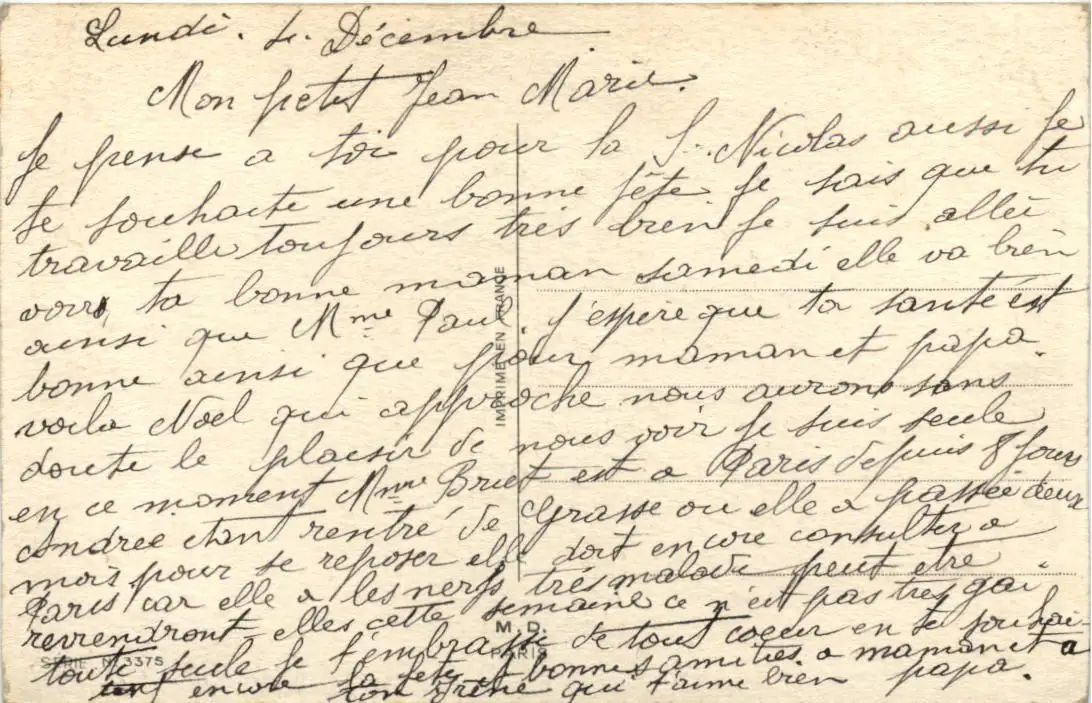 Lundi. 4. Décembre
Mon petit Jean Marie.
Je pense a toi pour la S. Nicolas aussi je
te souhaite une bonne fête je sais que tu
travaille toujours très bien je suis allée
voir ta bonne maman samedi elle va bien
ainsi que Mme Paul. J'espère que ta santé est
bonne ainsi que pour maman et papa.
voila Noel qui approche nous aurons sans
doute le plaisir de nous voir je suis seule
en ce moment Mme Briet est a Paris depuis 8 jours
andree etant rentré de Grasse ou elle a passée deux
mois pour se reposer elle doit encore consulter a
Paris car elle a les nerfs très malade peut etre
revrendront elles cette semaine ce n'est pas très gai
toute seule je t'embrasse de tout coeur en te souhai-
tant encore ta fete et bonnes amities a maman et a
papa.
qui t'aime bien
IMPRIMÉ EN FRANCE
M.D.
PARIS
SÉRIE N° 3375